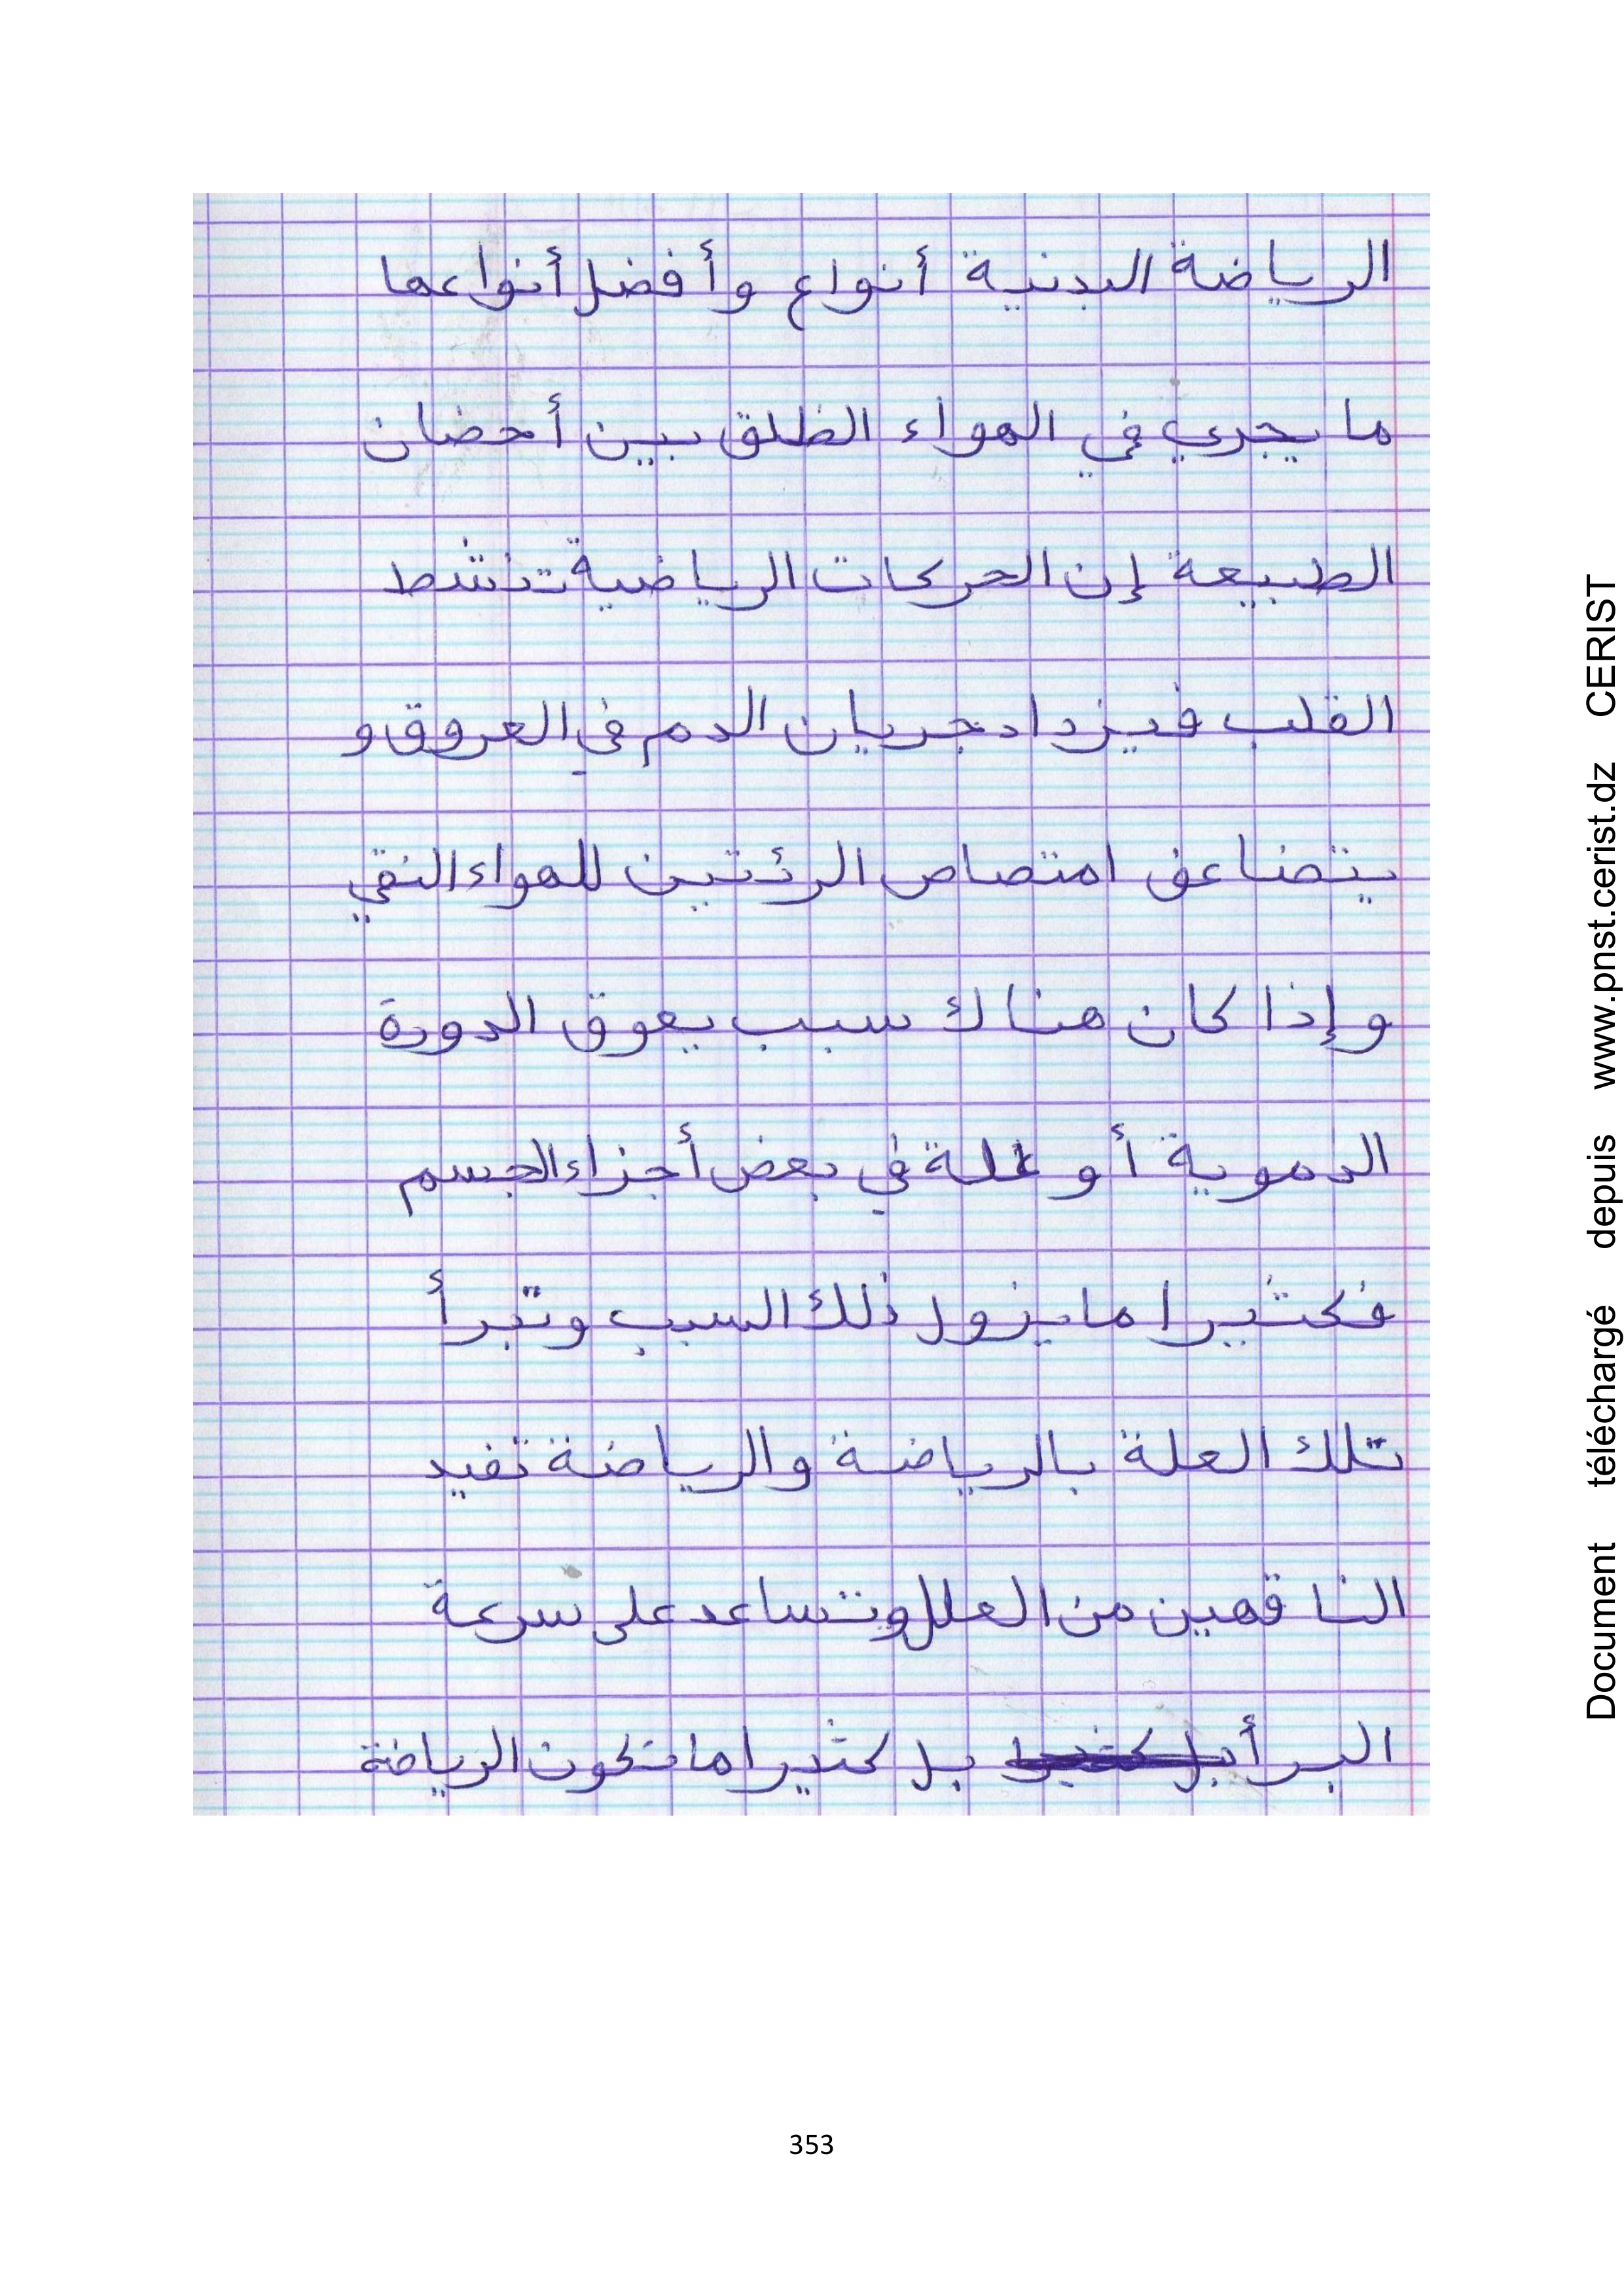 الرياضة البدنية أنواع وأفضل أنواعها
ما يجري في الهواء الظلق بين أحضان
الطبيعة إن الحركات الرياضية تنشط
القلب فيزداد جريان الدم في العروق و
يتضاعف امتصاص الرئتين للهواء النقي
وإذا كان هناك سبب يعوق الدورة
الدموية أو علة في بعض أجزاء الجسم
فكثيرا ما يزول ذلك السبب وتبرأ
تلك العلة بالرياضة والرياضة تفيد
الناقهين من العلل وتساعد على سرعة
البرأ بل كثيرا بل كثيرا ما تكون الرياضة
353
Document téléchargé depuis www.pnst.cerist.dz CERIST